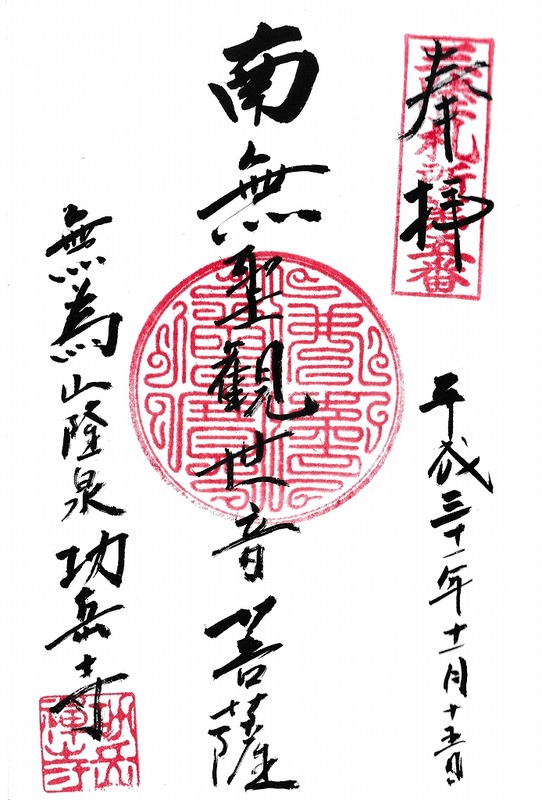 奉拝
平成三十一年十一月十五日
南無聖觀世音菩薩
無為山隆泉功岳寺
功岳禅寺